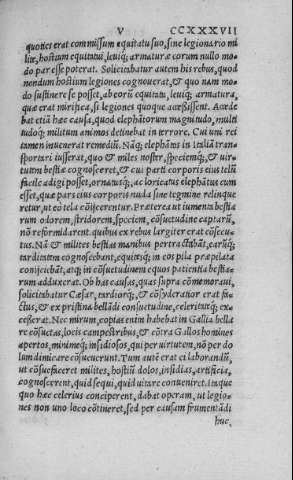 V CCXXXVII
quoties erat commissum equitatu suo, sine legionario mi
lite, hostium equitatui, leuiq; armaturæ eorum nullo mo
do par esse poterat. Solicitabatur autem his rebus, quod
nondum hostium legiones cognouerat, & quo nam mo
do sustinere se posset, ab eorū equitatu, leuiq; armatura,
quæ erat mirifica, si legiones quoque accessissent. Accede
bat etiā hæc causa, quod elephantorum magnitudo, multi
tudoq; militum animos detinebat in terrore. Cui uni rei
tamen inuenerat remediū. Nāq; elephātis in Italiā tran
sportari iusserat, quo & miles noster, speciemq; & uir-
tutem bestiæ cognosceret, & cui parti corporis eius telū
facile adigi posset, ornatusq;, ac loricatus elephātus cum
esset, quæ pars eius corporis nuda sine tegmine relinque
retur, ut eò tela cōijcerentur. Præterea ut iumenta bestia
rum odorem, stridorem, speciem, cōsuetudine captarū,
nō reformidarent. quibus ex rebus largiter erat cōsecu-
tus. Nā & milites bestias manibus pertractabāt, earūq;
tarditatem cognoscebant, equitesq; in eos pila præpilata
conijciebāt, atq; in cōsuetudinem equos patientia bestia-
rum adduxerat. Ob has causas, quas supra cōmemoraui,
solicitabatur Cæsar, tardiorq;, & cōsyderatior erat fa-
ctus, & ex pristina bellādi consuetudine, celeritateq; ex-
cesserat. Nec mirum, copias enim habebat in Gallia bella
re cōsuetas, locis campestribus, & cōtra Gallos homines
apertos, minimeq; insidiosos, qui per uirtutem, nō per do
lum dimicare cōsueuerunt. Tum autē erat ei laborandū,
ut cōsuefaceret milites, hostiū dolos, insidias, artificia,
cognoscerent, quid sequi, quid uitare conueniret. Itaque
quo hæc celerius conciperent, dabat operam, ut legio-
nes non uno loco cōtineret, sed per causam frumentādi
huc,